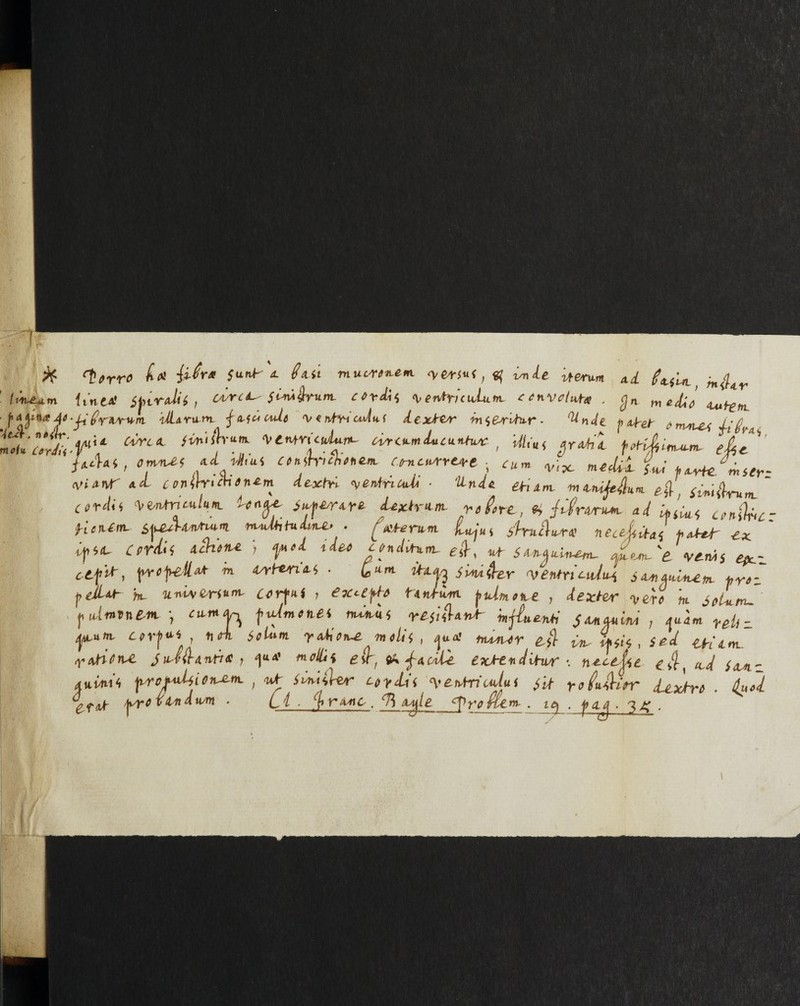 * Porro hæ fibræ sunt à basi mucronem versus, & inde iterum ad basin, instar
lineæ spiralis, circa sinistrum cordis ventriculum convolutæ. In medio autem
fibrarum illarum fasciculo ventriculus dexter inseritur. Unde patet omnes fibras,
quia circa sinistrum ventriculum circumducuntur, illius gratiâ potissimum esse
factas, omnes ad illius constrictionem concurrere; cum vix mediâ sui parte inser=
viant ad constrictionem dextri ventriculi. Unde etiam manifestum est, sinistrum
cordis ventriculum longe superare dextrum robore, & fibrarum ad ipsius constric=
tionem spectantium multitudine. Cæterum hujus structuræ necessitas patet ex
ipsa cordis actione; quod ideo conditum est, ut sanguinem quem è venis ex=
cepit, propellat in arterias. Cùm itaq3 sinister ventriculus sanguinem pro=
pellat in universum corpus, excepto tantùm pulmone, dexter verò in solum
pulmonem; cumq3 pulmones minùs resistant influenti sanguini, quàm reli=
quum corpus, non solùm ratione molis, quæ minor est in ipsis, sed etiam
ratione substantiæ, quæ mollis est, & facilè extenditur: necesse est, ad san=
guinis propulsionem, ut sinister cordis ventriculus sit robustior dextro. Quod
erat probandum. Cl. Franc. Bayle Problem. 19. pag. 35.
lineam
paginæ 40.
lect. nostr.
motu Cordis.